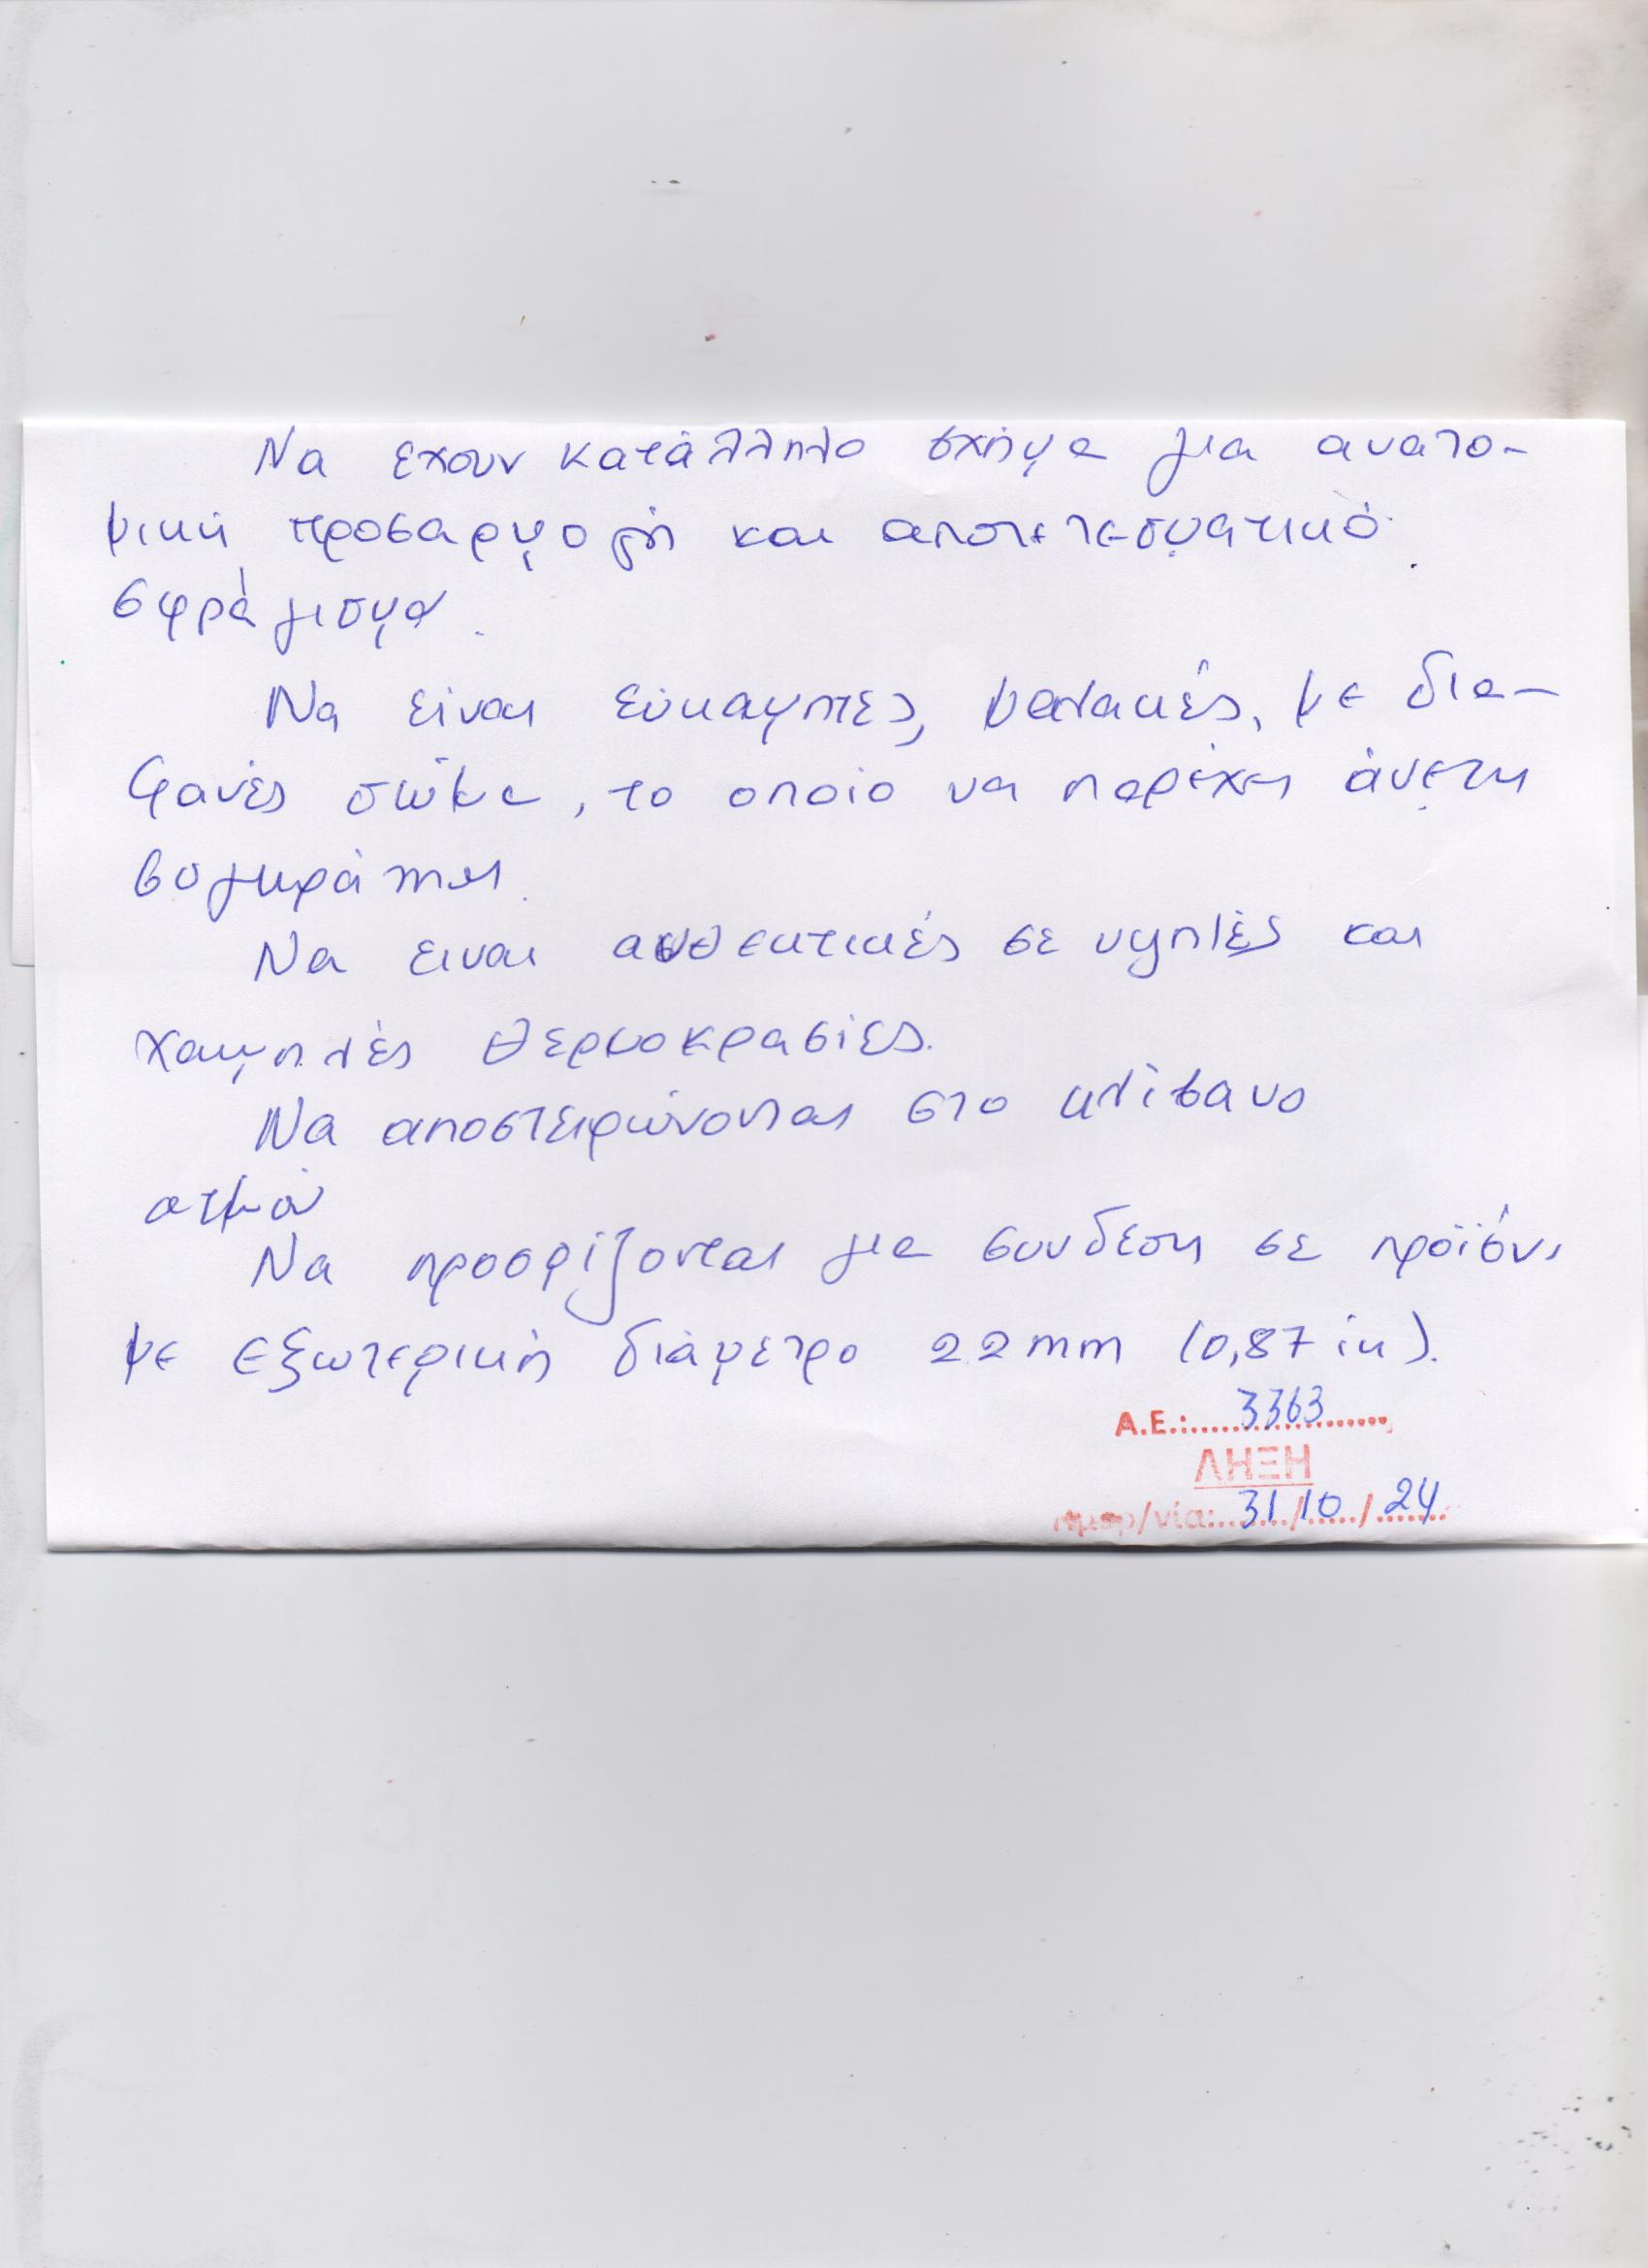 Να εχουν κατάλληλο σχήμα για ανατο-
μική προσαρμογή και αποτελεσματικό
σφράγισμα.
Να είναι εύκαμπτες, μαλακές, με δια-
φανές σώμα, το οποίο να παρέχει άνετη
συγκράτηση.
Να ειναι ανθεκτικές σε υψηλές και
χαμηλές θερμοκρασίες.
Να αποστειρώνονται στο κλίβανο
ατμού
Να προορίζονται για συνδεση σε προϊόν,
με εξωτερική διάμετρο 22mm (0,87 in).
Α.Ε.:.....3363.........
ΛΗΞΗ
ημερ/νία:..31/10/24